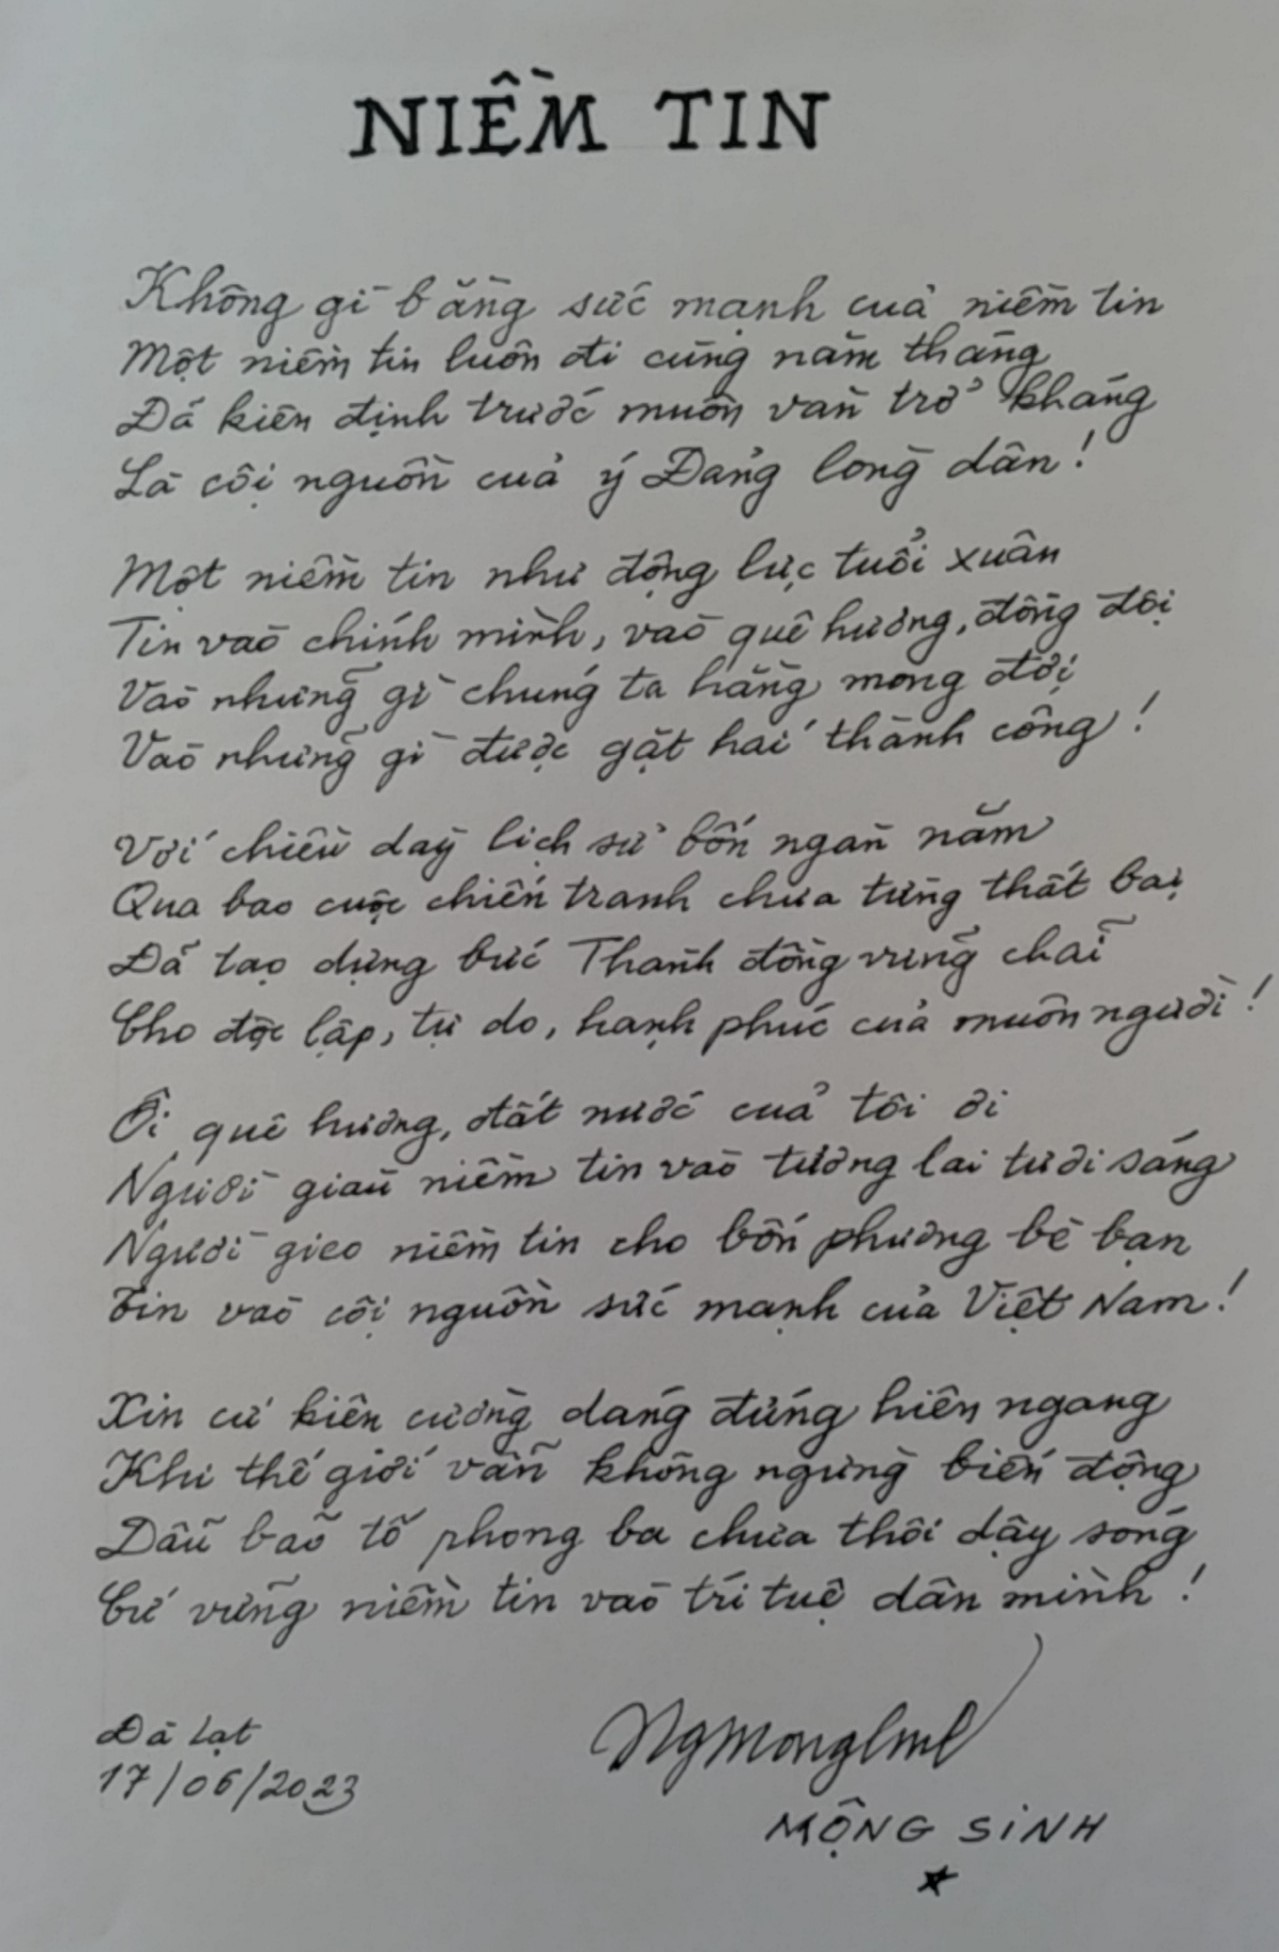 NIỀM TIN
Không gì bằng sức mạnh của niềm tin
Một niềm tin luôn đi cùng năm tháng
Đã kiên định trước muôn vàn trở kháng
Là cội nguồn của ý Đảng lòng dân!
Một niềm tin như động lực tuổi xuân
Tin vào chính mình, vào quê hương, đồng đội
Vào những gì chúng ta hằng mong đợi
Vào những gì được gặt hái thành công!
Với chiều dày lịch sử bốn ngàn năm
Qua bao cuộc chiến tranh chưa từng thất bại
Đã tạo dựng bức Thành đồng vững chãi
Cho độc lập, tự do, hạnh phúc của muôn người!
Ôi quê hương, đất nước của tôi ơi
Người giàu niềm tin vào tương lai tươi sáng
Người gieo niềm tin cho bốn phương bè bạn
Tin vào cội nguồn sức mạnh của Việt Nam!
Xin cứ kiên cường dáng đứng hiên ngang
Khi thế giới vẫn không ngừng biến động
Dẫu bão tố phong ba chưa thôi dậy sóng
Cứ vững niềm tin vào trí tuệ dân mình!
Đà Lạt
17/06/2023
MỘNG SINH